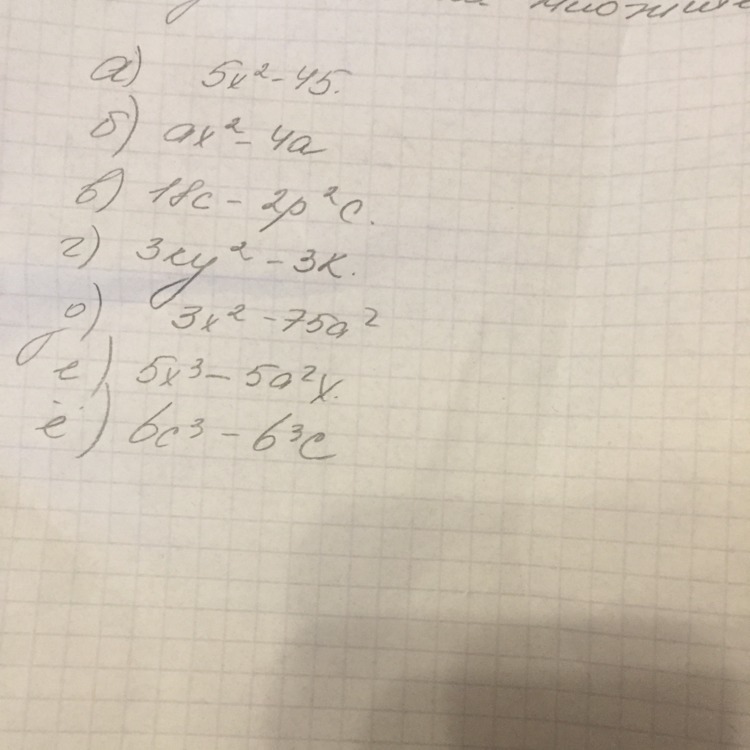 на множите
а) 5x² - 45.
б) ax² - 4a
в) 18c - 2p²c.
г) 3xy² - 3x.
д) 3x² - 75a²
е) 5x³ - 5a²x.
ё) bc³ - b³c